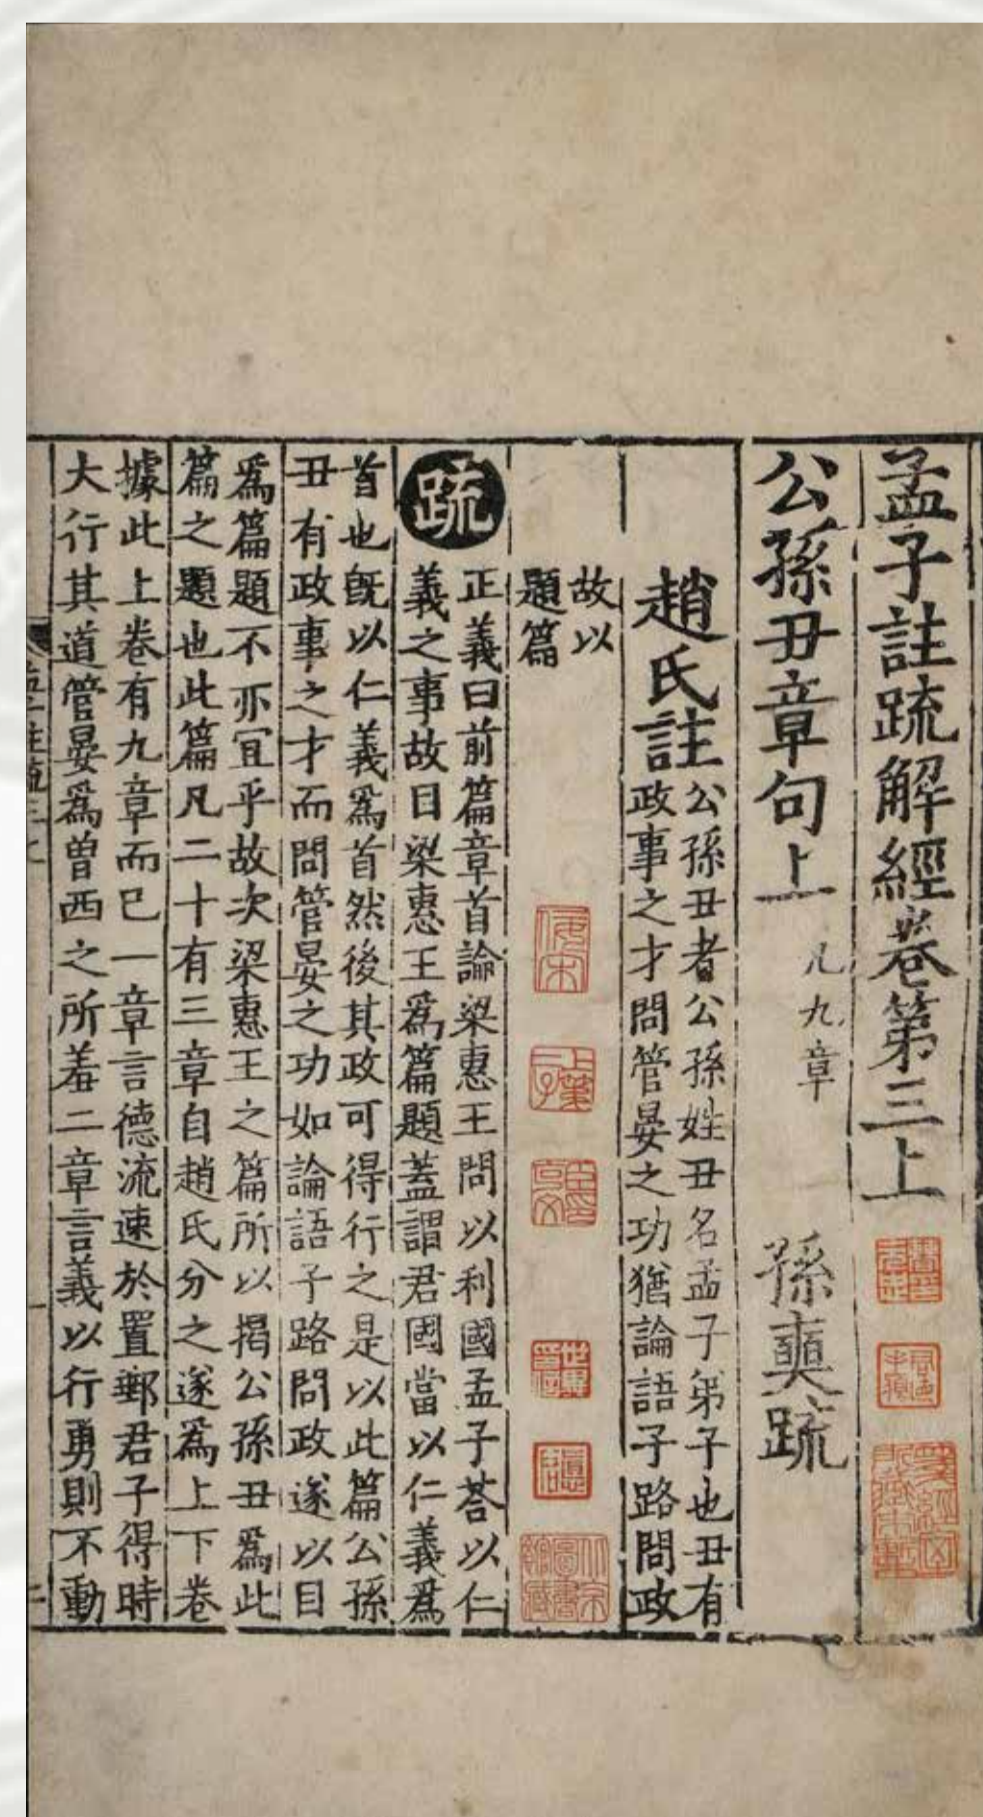 孟子註疏解經卷第三上
公孫丑章句上 凡九章 孫奭疏
趙氏註
公孫丑者公孫姓丑名孟子弟子也丑有
政事之才問管晏之功猶論語子路問政
故以
題篇
疏
正義曰前篇章首論梁惠王問以利國孟子荅以仁
義之事故目梁惠王爲篇題蓋謂君國當以仁義爲
首也旣以仁義爲首然後其政可得行之是以此篇公孫
丑有政事之才而問管晏之功如論語子路問政遂以目
爲篇題不亦宜乎故次梁惠王之篇所以揭公孫丑爲此
篇之題也此篇凡二十有三章自趙氏分之遂爲上下卷
據此上卷有九章而已一章言德流速於置郵君子得時
大行其道管晏爲曾西之所羞二章言義以行勇則不動